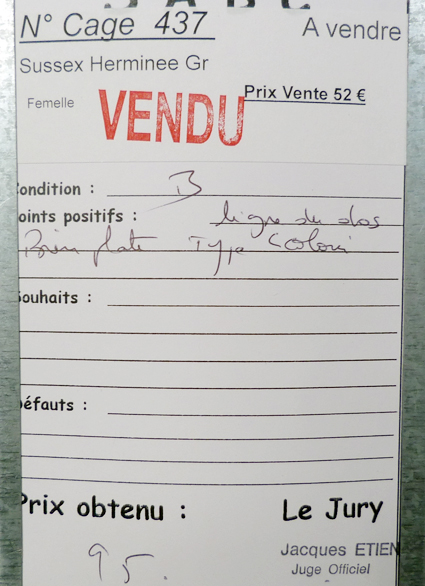 N° Cage 437 A vendre
Sussex Herminee Gr
Femelle VENDU Prix Vente 52 €
ondition : B
oints positifs : ligne du dos
Bien plate Type Coloris
ouhaits :
éfauts :
Prix obtenu : Le Jury
95. Jacques ETIEN
Juge Officiel